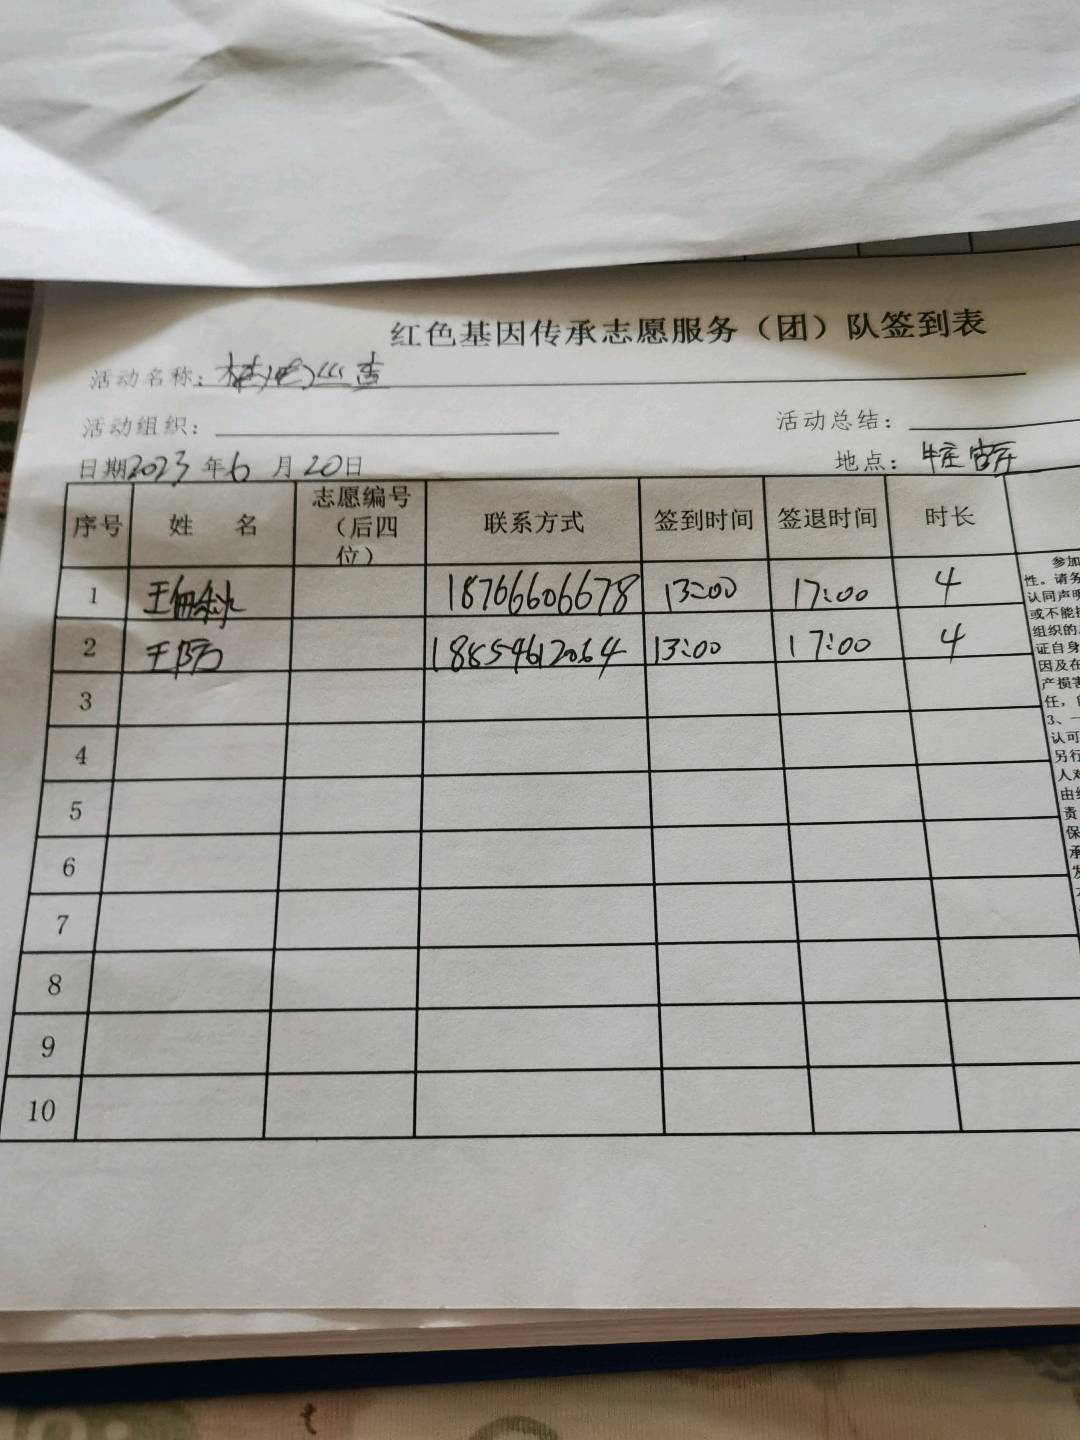 红色基因传承志愿服务（团）队签到表
活动名称：
活动组织：
活动总结：
日期2023年6月20日
地点：
序号 姓 名 志愿编号（后四位） 联系方式 签到时间 签退时间 时长
1 王 18766606678 13:00 17:00 4
2 王 18854612064 13:00 17:00 4
3
4
5
6
7
8
9
10
参加
性。请务
认同声明
或不能
组织的
证自身
因及在
产损害
任，
3、一
认可
另行
人对
由组
责
保
承
发